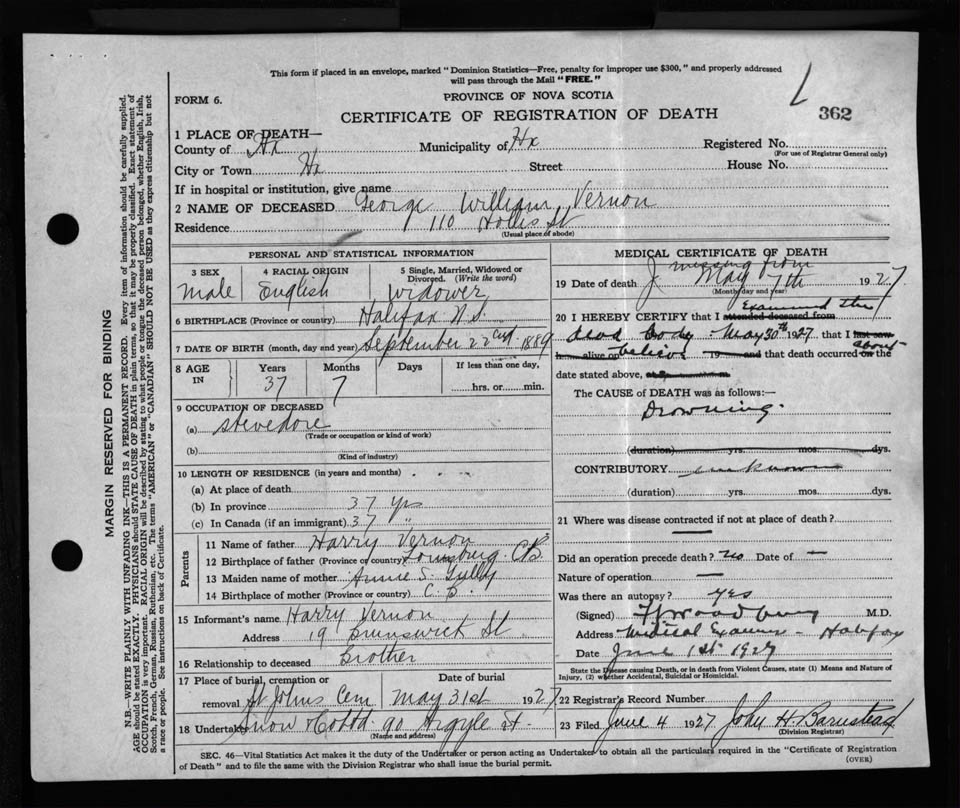 This form if placed in an envelope, marked "Dominion Statistics—Free, penalty for improper use $300," and properly addressed
will pass through the Mail "FREE."
FORM 6.
PROVINCE OF NOVA SCOTIA
CERTIFICATE OF REGISTRATION OF DEATH
362
1 PLACE OF DEATH—
County of Hx Municipality of Hx Registered No.
(For use of Registrar General only)
City or Town Hx Street House No.
If in hospital or institution, give name
2 NAME OF DECEASED George William Vernon
Residence 110 Hollis St
(Usual place of abode)
PERSONAL AND STATISTICAL INFORMATION
3 SEX
Male
4 RACIAL ORIGIN
English
5 Single, Married, Widowed or
Divorced. (Write the word)
Widower
6 BIRTHPLACE (Province or country) Halifax N.S.
7 DATE OF BIRTH (month, day and year) September 22 1889
8 AGE IN
Years 37
Months 7
Days
If less than one day,
hrs. or min.
9 OCCUPATION OF DECEASED
(a) Stevedore
(Trade or occupation or kind of work)
(b)
(Kind of industry)
10 LENGTH OF RESIDENCE (in years and months)
(a) At place of death
(b) In province 37 yrs
(c) In Canada (if an immigrant) 37 "
Parents
11 Name of father Harry Vernon
12 Birthplace of father (Province or country) Louisburg C.B.
13 Maiden name of mother Annie S.
14 Birthplace of mother (Province or country) C.B.
15 Informant's name Harry Vernon
Address 191 Brunswick St
16 Relationship to deceased Brother
17 Place of burial, cremation or
removal St Johns Cem
Date of burial
May 31st 1927
18 Undertaker Snow 90 Argyle St.
(Name and address)
MEDICAL CERTIFICATE OF DEATH
missing from
19 Date of death May 7th 1927
(Month, day and year)
Examined the
20 I HEREBY CERTIFY that I attended deceased from
dead body May 30th 1927 that I last saw
h alive on believe 19 and that death occurred on about the
date stated above, at
The CAUSE OF DEATH was as follows:—
Drowning.
(duration) yrs. mos. dys.
CONTRIBUTORY unknown
(duration) yrs. mos. dys.
21 Where was disease contracted if not at place of death?
—
Did an operation precede death? no Date of —
Nature of operation —
Was there an autopsy? yes
(Signed) Woodbury M.D.
Address Medical Examr - Halifax
Date June 1st 1927
State the Disease causing Death, or in death from Violent Causes, state (1) Means and Nature of
Injury, (2) whether Accidental, Suicidal or Homicidal. (See over.)
22 Registrar's Record Number
23 Filed June 4 1927 John H Barnstead
(Division Registrar)
SEC. 46—Vital Statistics Act makes it the duty of the Undertaker or person acting as Undertaker to obtain all the particulars required in the "Certificate of Registration
of Death" and to file the same with the Division Registrar who shall issue the burial permit.
(OVER)
MARGIN RESERVED FOR BINDING
N.B.—WRITE PLAINLY WITH UNFADING INK—THIS IS A PERMANENT RECORD. Every item of information should be carefully supplied.
AGE should be stated EXACTLY. PHYSICIANS should STATE CAUSE OF DEATH in plain terms, so that it may be properly classified. Exact statement of
OCCUPATION is very important. RACIAL ORIGIN will be described by stating to what people or tongue the deceased person belonged, whether English, Irish,
Scotch, French, German, Russian, Ruthenian, etc. The terms "AMERICAN" or "CANADIAN" SHOULD NOT BE USED as they express citizenship but not
a race or people. See instructions on back of Certificate.